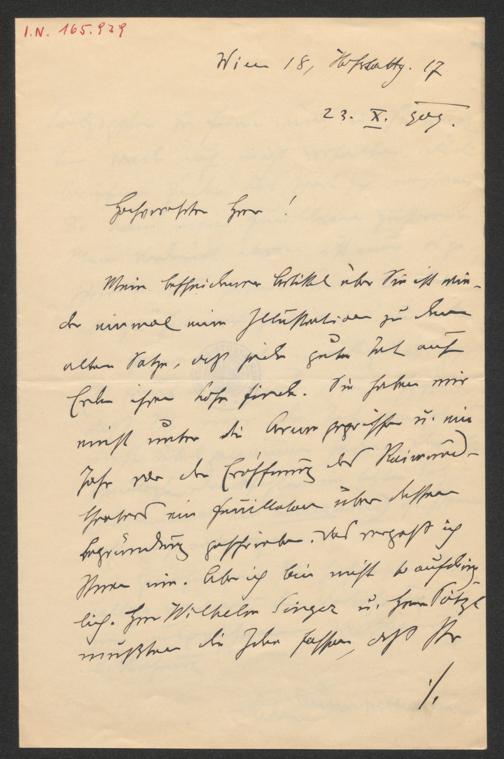 I.N. 165.929
Wien 18, 17
23. X. 909.
Hochverehrter Herr!
Mein bescheidener Artikel über Sie ist wie-
der einmal eine Illustration zu dem
alten Satze, daß jede gute Tat auf
Erden ihren Lohn findet. Sie haben mir
einst unter die Arme gegriffen u. ein
Jahr vor der Eröffnung des Raimund-
theaters ein Feuilleton über dessen
Begründung geschrieben. Das vergaß ich
Ihnen nie. Aber ich bin nicht so aufdring-
lich. Herr Wilhelm Singer u. Herr Pötzl
mußten die Idee fassen, daß Ihr
./.